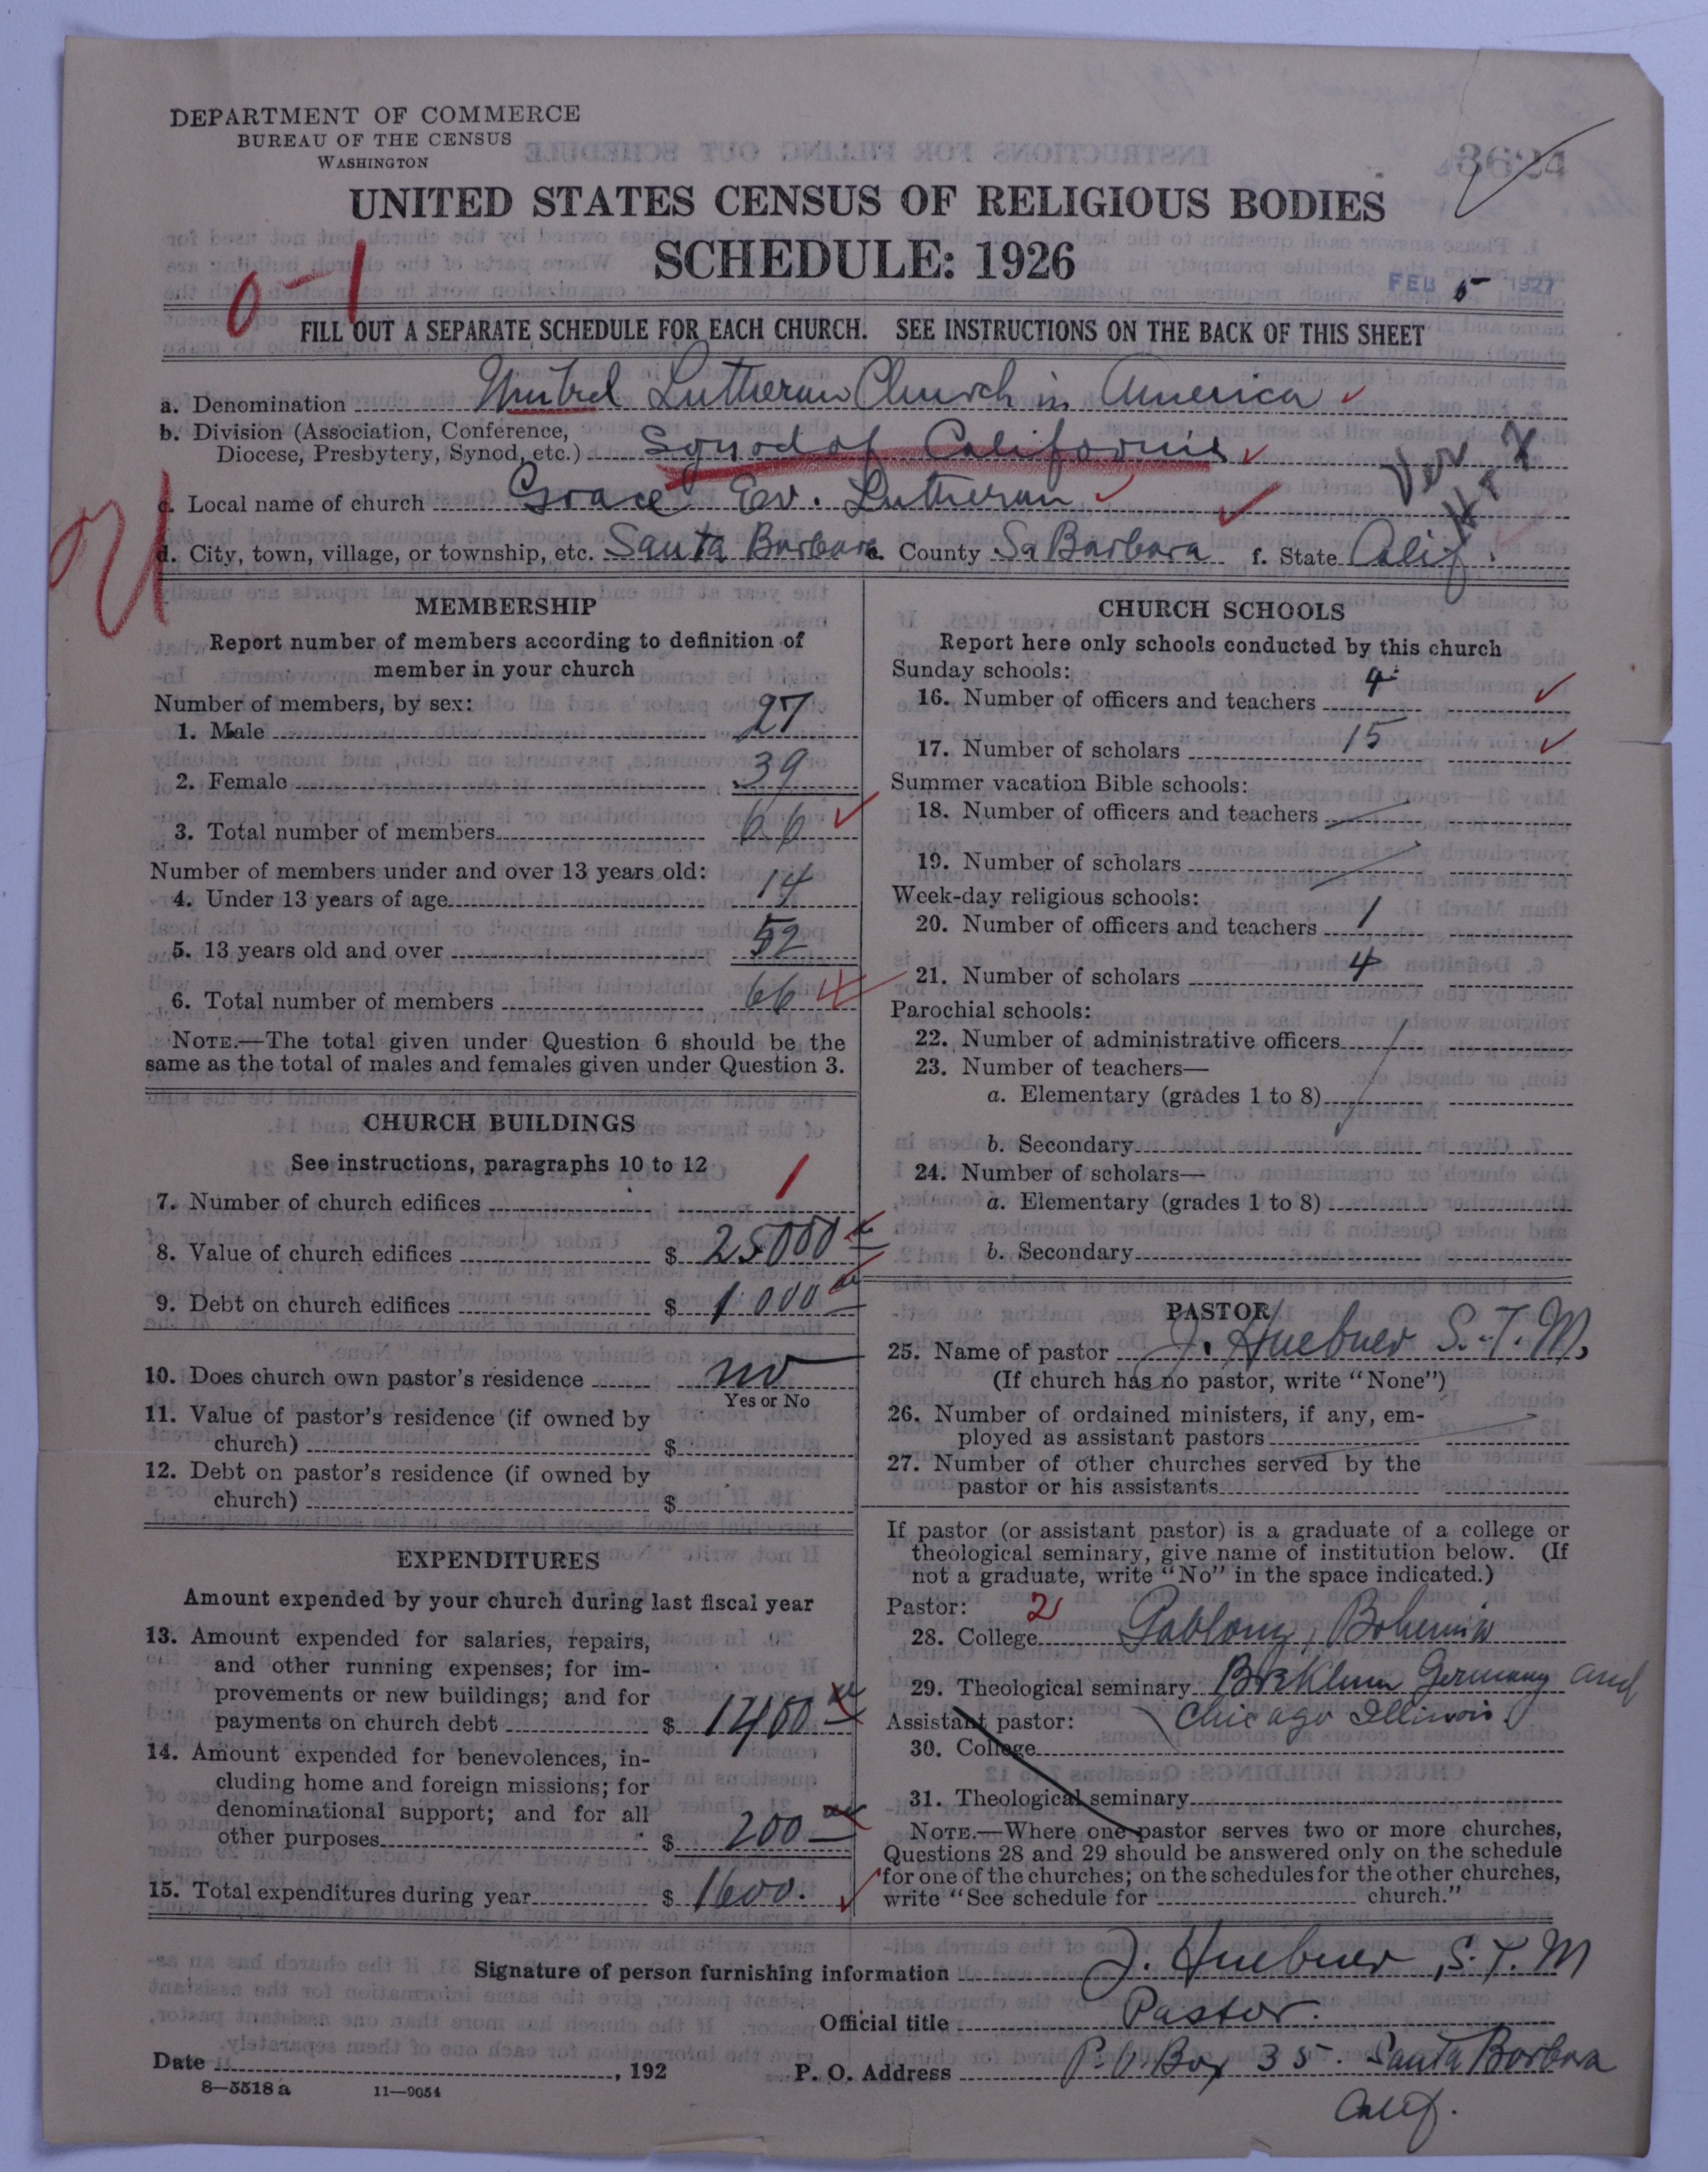 DEPARTMENT OF COMMERCE
BUREAU OF THE CENSUS
WASHINGTON
3624
UNITED STATES CENSUS OF RELIGIOUS BODIES
SCHEDULE: 1926
FEB 5 1927
0-1
FILL OUT A SEPARATE SCHEDULE FOR EACH CHURCH. SEE INSTRUCTIONS ON THE BACK OF THIS SHEET
a. Denomination United Lutheran Church in America
b. Division (Association, Conference,
Diocese, Presbytery, Synod, etc.) Synod of California
c. Local name of church Grace Ev. Lutheran
d. City, town, village, or township, etc. Santa Barbara e. County Sa Barbara f. State Calif.
MEMBERSHIP
Report number of members according to definition of
member in your church
Number of members, by sex:
1. Male 27
2. Female 39
3. Total number of members 66
Number of members under and over 13 years old:
4. Under 13 years of age 14
5. 13 years old and over 52
6. Total number of members 66
NOTE.—The total given under Question 6 should be the
same as the total of males and females given under Question 3.
CHURCH BUILDINGS
See instructions, paragraphs 10 to 12
7. Number of church edifices 1
8. Value of church edifices $ 25000
9. Debt on church edifices $ 1000
10. Does church own pastor's residence no
Yes or No
11. Value of pastor's residence (if owned by
church) $
12. Debt on pastor's residence (if owned by
church) $
EXPENDITURES
Amount expended by your church during last fiscal year
13. Amount expended for salaries, repairs,
and other running expenses; for im-
provements or new buildings; and for
payments on church debt $ 1400
14. Amount expended for benevolences, in-
cluding home and foreign missions; for
denominational support; and for all
other purposes $ 200
15. Total expenditures during year $ 1600.
CHURCH SCHOOLS
Report here only schools conducted by this church
Sunday schools:
16. Number of officers and teachers 4
17. Number of scholars 15
Summer vacation Bible schools:
18. Number of officers and teachers
19. Number of scholars
Week-day religious schools:
20. Number of officers and teachers 1
21. Number of scholars 4
Parochial schools:
22. Number of administrative officers
23. Number of teachers—
a. Elementary (grades 1 to 8)
b. Secondary
24. Number of scholars—
a. Elementary (grades 1 to 8)
b. Secondary
PASTOR
25. Name of pastor J. Huebner S.T.M.
(If church has no pastor, write "None")
26. Number of ordained ministers, if any, em-
ployed as assistant pastors
27. Number of other churches served by the
pastor or his assistants
If pastor (or assistant pastor) is a graduate of a college or
theological seminary, give name of institution below. (If
not a graduate, write "No" in the space indicated.)
Pastor: 2
28. College Gablonz, Bohemia
29. Theological seminary Breklum Germany and
Assistant pastor: Chicago Illinois
30. College
31. Theological seminary
NOTE.—Where one pastor serves two or more churches,
Questions 28 and 29 should be answered only on the schedule
for one of the churches; on the schedules for the other churches,
write "See schedule for church."
Signature of person furnishing information J. Huebner, S.T.M
Official title Pastor.
Date , 192
P. O. Address P.O. Box 35. Santa Barbara
Calif.
8—5518a 11—9054